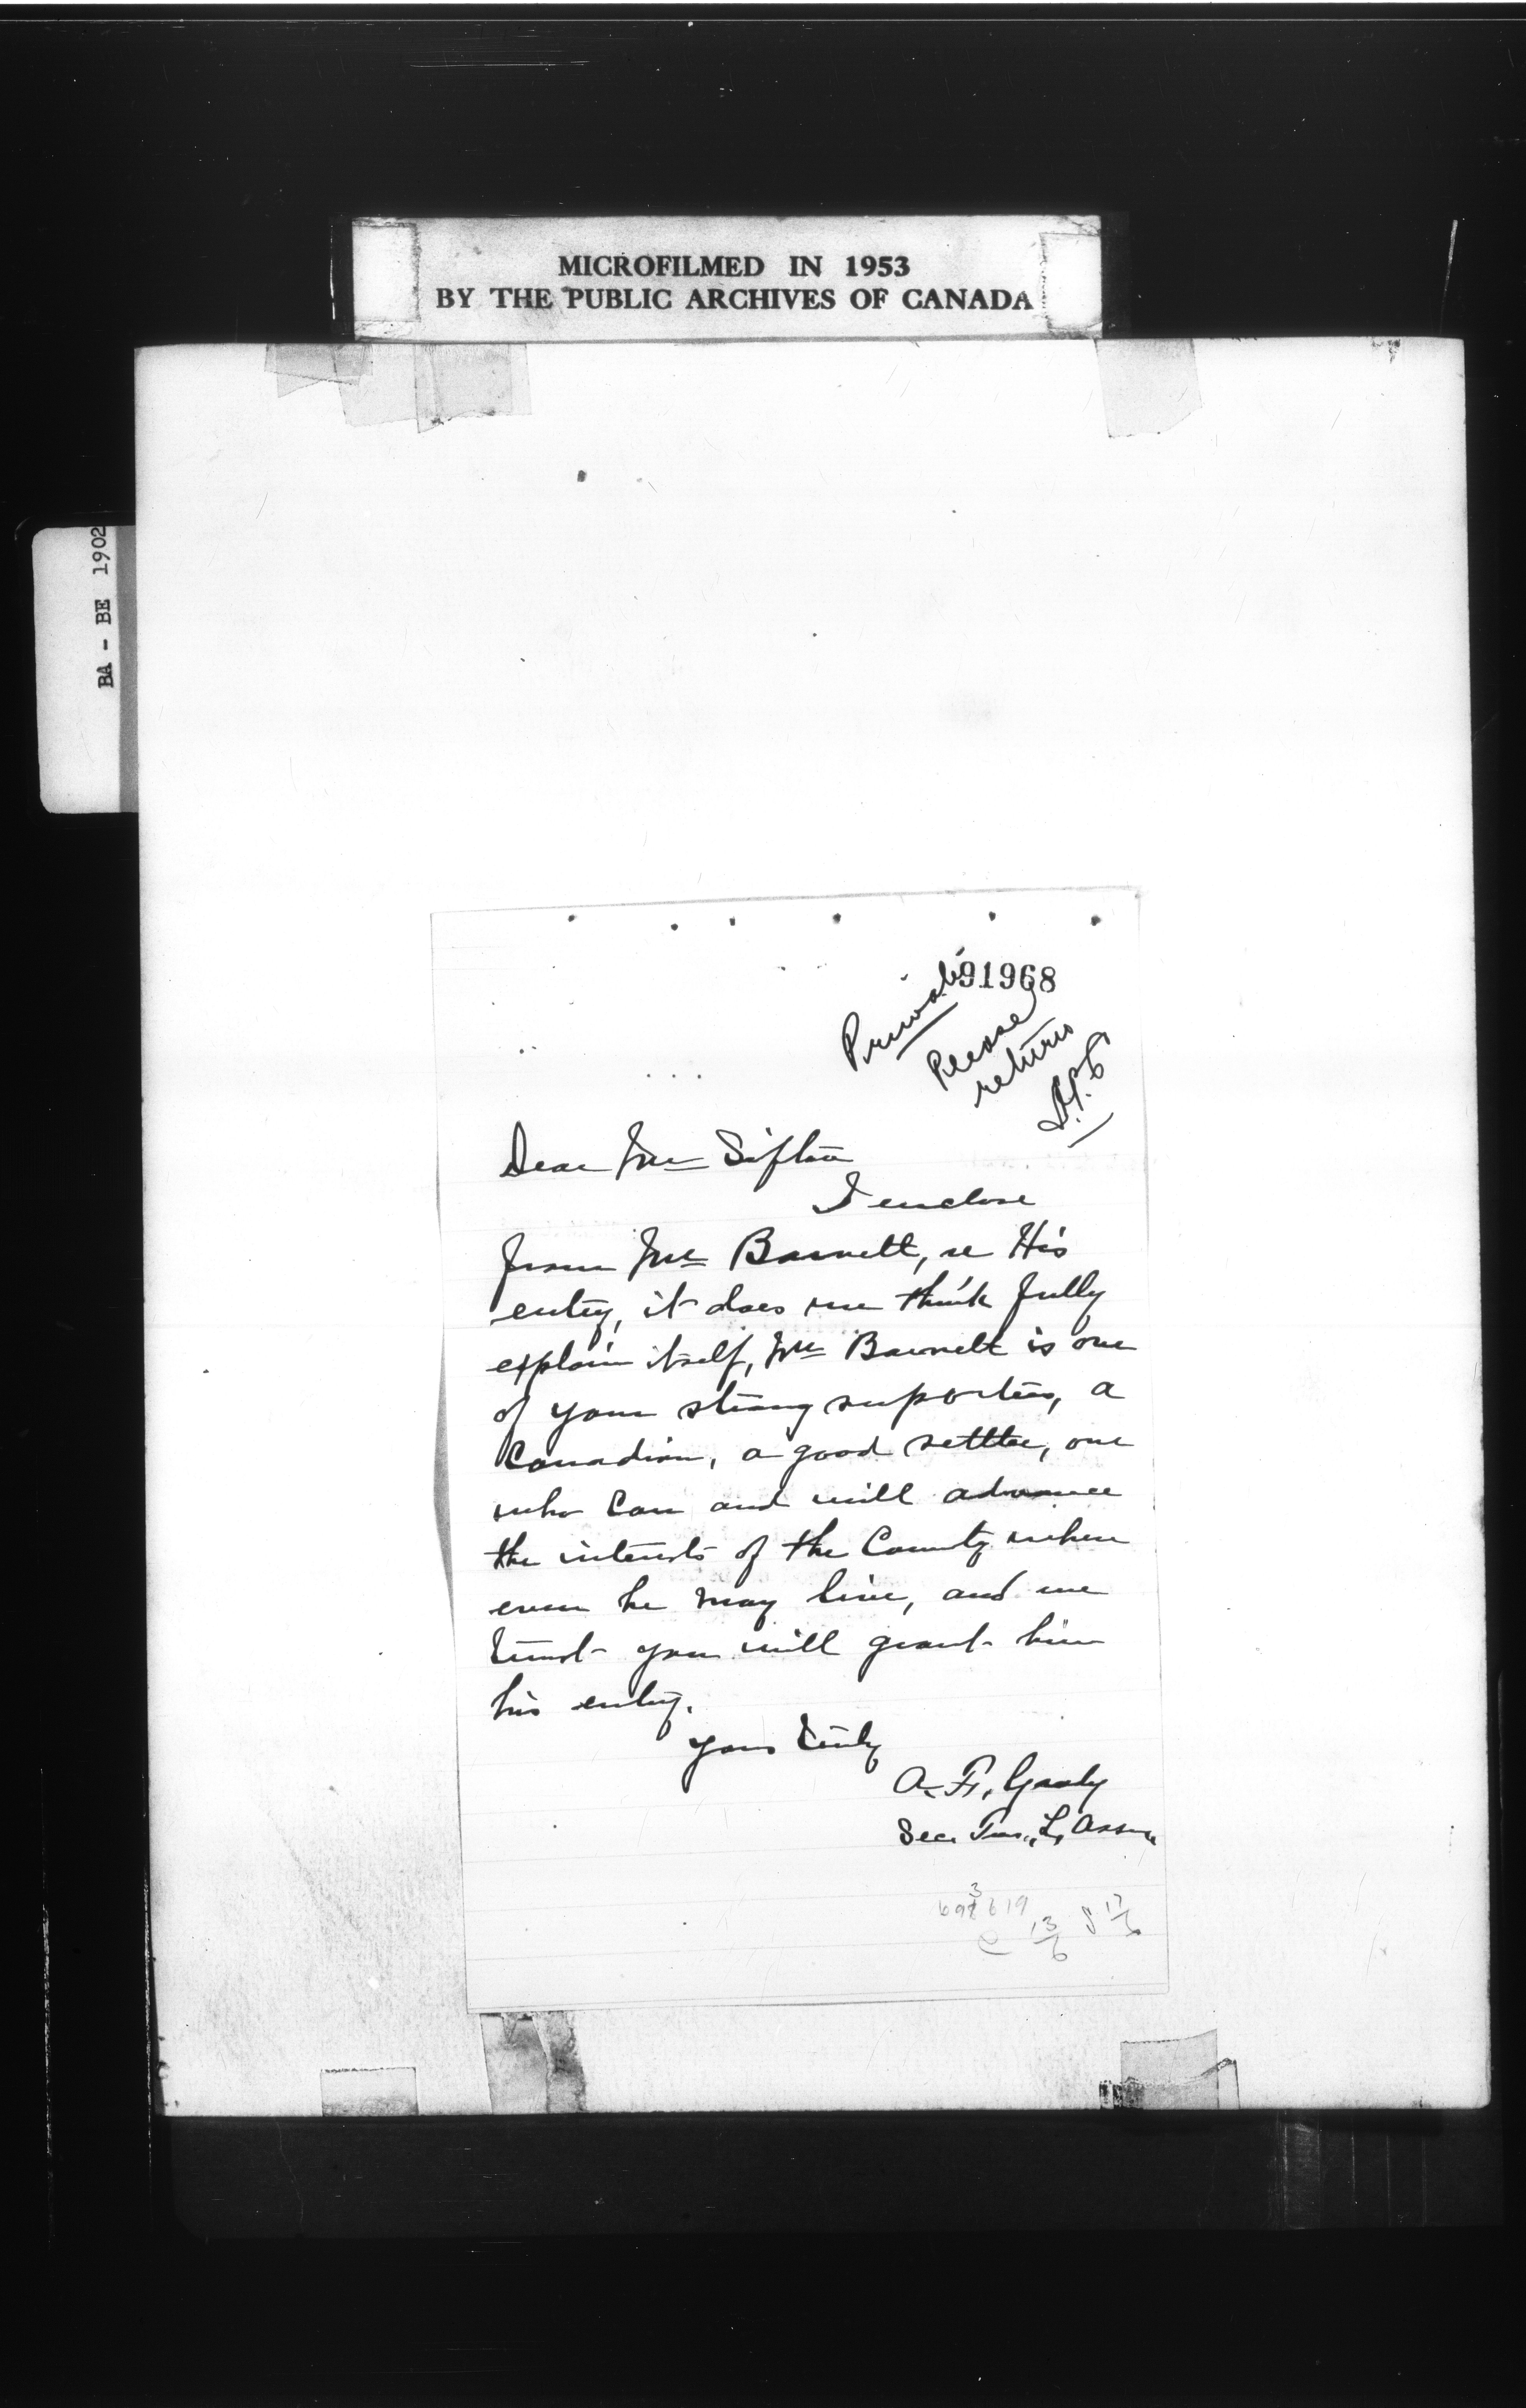 MICROFILMED IN 1953
BY THE PUBLIC ARCHIVES OF CANADA
BA - BE 1902
91968
Private
Please
return
Dear Mr Sifton
I enclose
from Mr Barnett, re His
entry, it does we think fully
explain itself, Mr Barnett is one
of your strong suporters, a
Canadian, a good settler, one
who can and will advance
the interests of the County where
ever he may live, and we
trust you will grant him
his entry.
Yours truly
A. F. Grady
Sec. Treas. L. Assn.
13/6
17/6